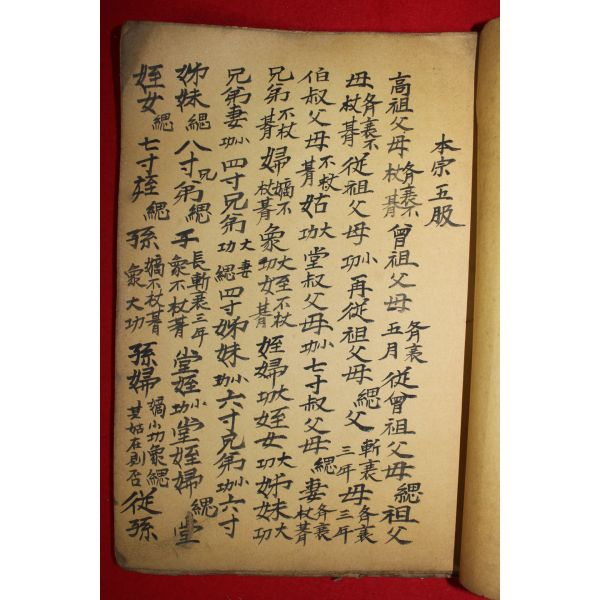 本宗五服
高祖父母齊衰不杖朞曾祖父母齊衰五月從曾祖父母緦祖父
母齊衰不杖朞從祖父母小功再從祖父母緦父斬衰三年母齊衰三年
伯叔父母不杖朞姑大功堂叔父母小功七寸叔父母緦妻齊衰杖朞
兄弟不杖朞婦嫡不杖朞衆大功女至不杖朞姪婦大功姪女大功姊妹大功
兄弟妻小功四寸兄弟大功妻緦四寸姊妹小功六寸兄弟小功六寸
姊妹緦八寸兄弟緦子長斬衰三年衆不杖朞堂姪小功堂姪婦緦堂
姪女緦七寸姪緦孫嫡不杖朞衆大功孫婦嫡小功衆緦其姑在則否從孫